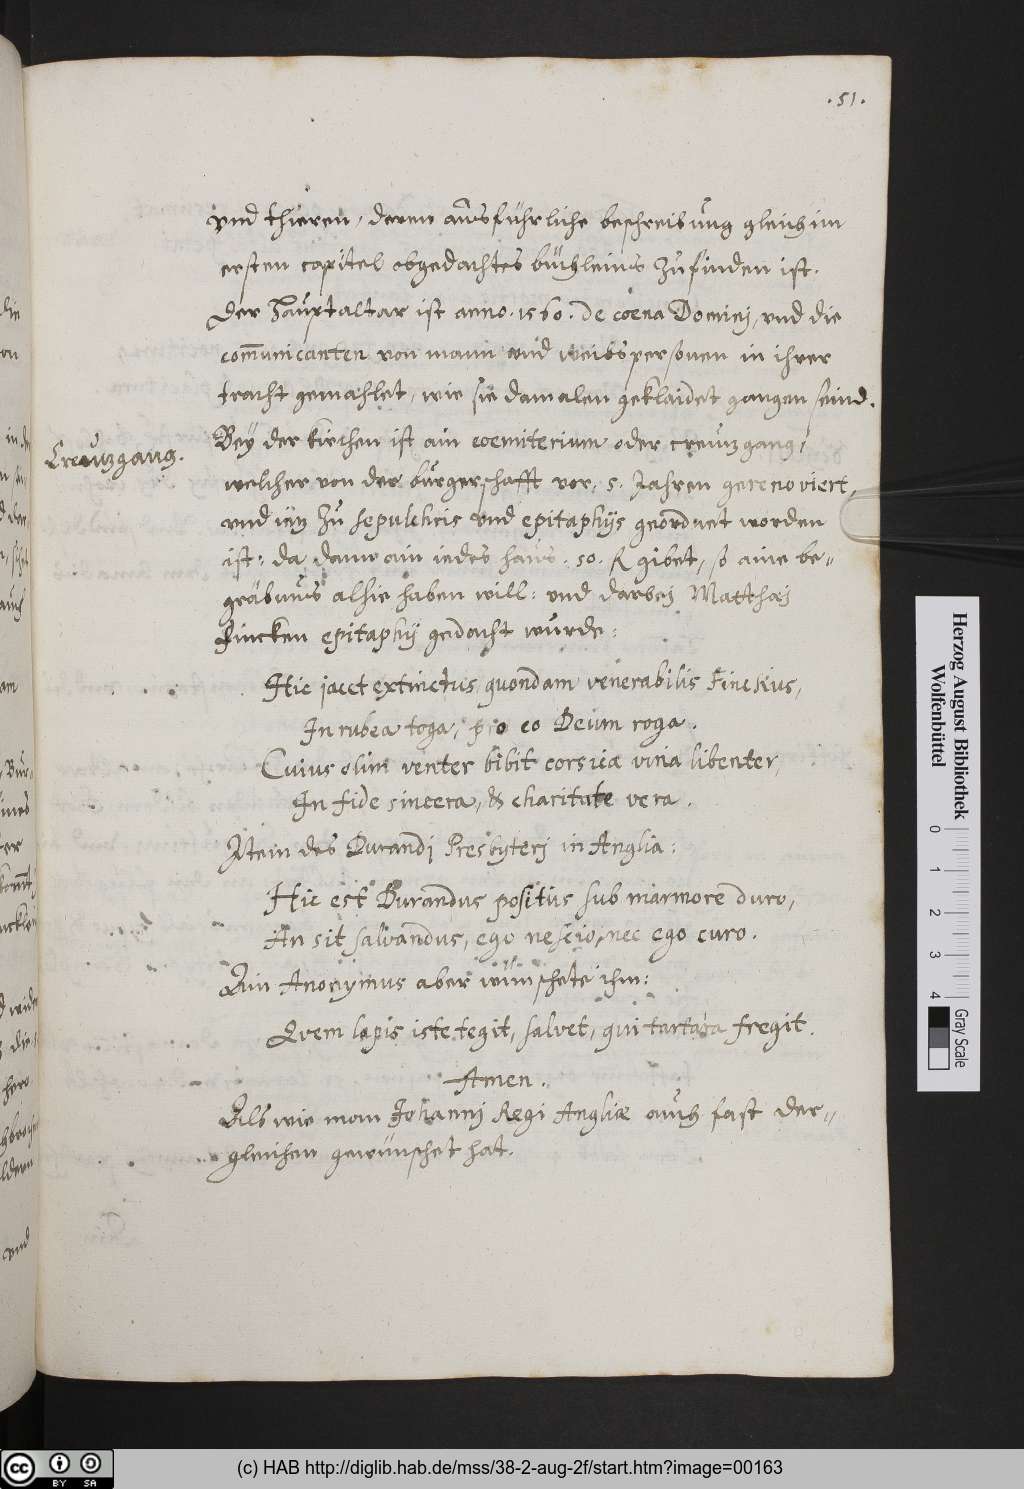 .51.
vnd thieren, deren ausführliche beschreibung gleich im
ersten capitel obgedachtes büchleins zufinden ist.
Der Haupt altar ist anno. 1560. De coena Dominj, vnd die
com̃unicanten von mann vnd weibspersonen in ihrer
tracht gemahlet, wie sie damalen geklaidet gangen seind.
Creützgang.
Bey der kirchen ist ain coemiterium oder creützgang,
welcher von der burgerschafft vor. 5. Jahren gerenoviert,
vnd ietz zu sepulchris vnd epitaphijs geordnet worden
ist: da dann ain iedes haus. 50. R gibet, so aine be-
gräbnus alhie haben will: vnd darbej Matthæj
Fincken epitaphij gedacht wurde:
Hic jacet extinctus, quondam venerabilis Finckius,
In rubea toga, pro eo Deum roga.
Cuius olim venter bibit corsica vina libenter,
In fide sincera, & charitate vera.
Item des Durandj Presbyterj in Anglia:
Hic est Durandus positus sub marmore duro,
An sit salvandus, ego nescio, nec ego curo.
Ain Anonymus aber wünschete ihm:
Qvem lapis iste tegit, salvet, qui tartara fregit.
Amen.
Alß wie man Johannj Regi Angliæ auch fast der-
gleichen gewünschet hat.
Herzog August Bibliothek
Wolfenbüttel
0 1 2 3 4
Gray Scale
cc BY SA
(c) HAB http://diglib.hab.de/mss/38-2-aug-2f/start.htm?image=00163